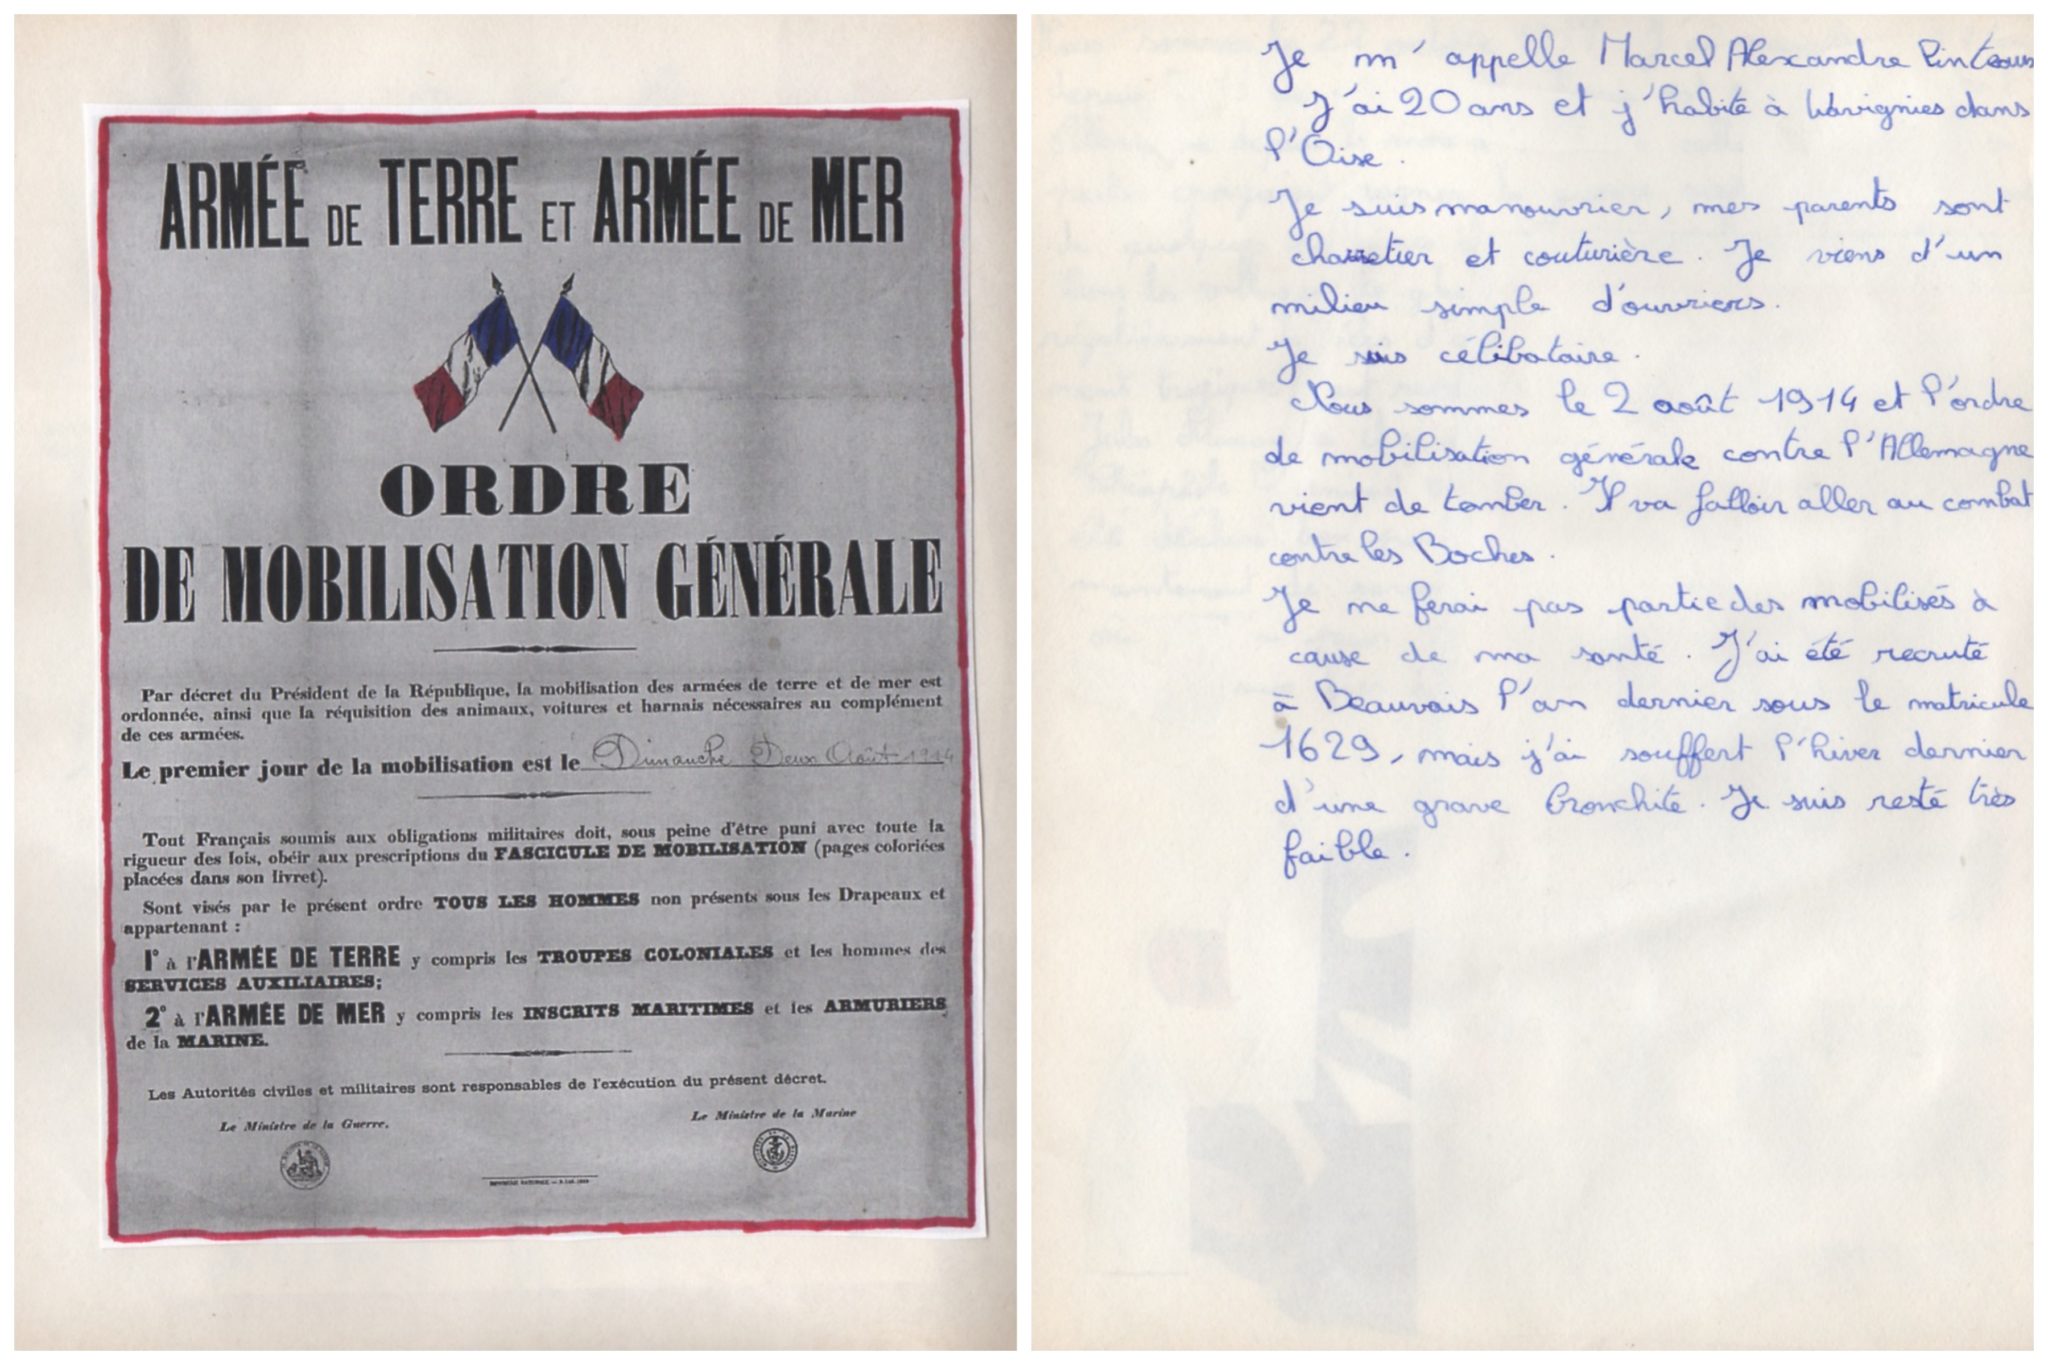 ARMÉE DE TERRE ET ARMÉE DE MER
ORDRE
DE MOBILISATION GÉNÉRALE
Par décret du Président de la République, la mobilisation des armées de terre et de mer est
ordonnée, ainsi que la réquisition des animaux, voitures et harnais nécessaires au complément
de ces armées.
Le premier jour de la mobilisation est le Dimanche Deux Août 1914
Tout Français soumis aux obligations militaires doit, sous peine d'être puni avec toute la
rigueur des lois, obéir aux prescriptions du FASCICULE DE MOBILISATION (pages coloriées
placées dans son livret).
Sont visés par le présent ordre TOUS LES HOMMES non présents sous les Drapeaux et
appartenant :
1° à l'ARMÉE DE TERRE y compris les TROUPES COLONIALES et les hommes des
SERVICES AUXILIAIRES;
2° à l'ARMÉE DE MER y compris les INSCRITS MARITIMES et les ARMURIERS
de la MARINE.
Les Autorités civiles et militaires sont responsables de l'exécution du présent décret.
Le Ministre de la Guerre.
Le Ministre de la Marine
IMPRIMERIE NATIONALE
Je m'appelle Marcel Alexandre
J'ai 20 ans et j'habite à Wavignies dans
l'Oise.
Je suis manouvrier, mes parents sont
charretier et couturière. Je viens d'un
milieu simple d'ouvriers.
Je suis célibataire.
Nous sommes le 2 août 1914 et l'ordre
de mobilisation générale contre l'Allemagne
vient de tomber. Il va falloir aller au combat
contre les Boches.
Je ne ferai pas partie des mobilisés à
cause de ma santé. J'ai été recruté
à Beauvais l'an dernier sous le matricule
1629, mais j'ai souffert l'hiver dernier
d'une grave bronchite. Je suis resté très
faible.